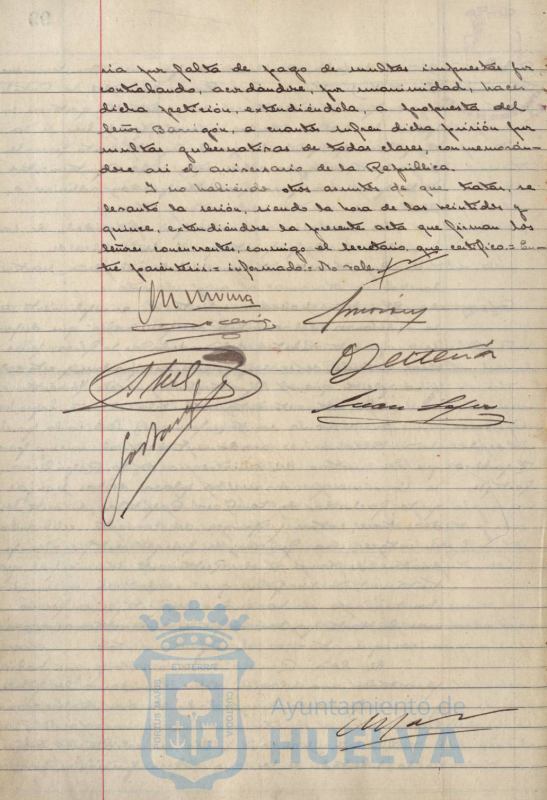 cia por falta de pago de multas impuestas por
contrabando, acordándose, por unanimidad, hacer
dicha petición, extendiéndola, a propuesta del
Señor Barrigón, a cuantos sufren dicha prisión por
multas gubernativas de todas clases, conmemorán-
dose así el aniversario de la República.
Y no habiendo otros asuntos de que tratar, se
levantó la sesión, siendo la hora de las veintidos y
quince, extendiéndose la presente acta que firman los
señores concurrentes, conmigo el secretario, que certifico.= En-
tre parentesis.= informado= No vale.
Juan
PORTUS MARIS
ET TERRÆ
CUSTODIA
Ayuntamiento de
HUELVA